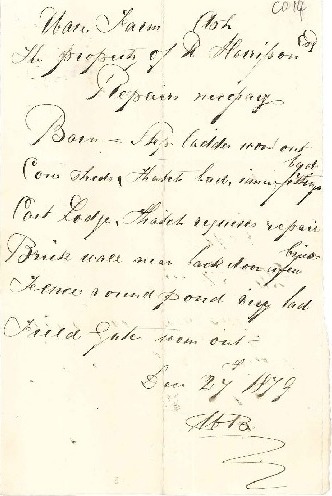 CO14
Ware Farm Ash
The property of R Harrison Esq
Repairs necessary
Barn – Step ladder worn out
Cow sheds, Thatch bad,
Cart Lodge, Thatch requires repair
Brick wall near back door
Fence round pond very bad
Field Gate worn out –
Dec 27 1879